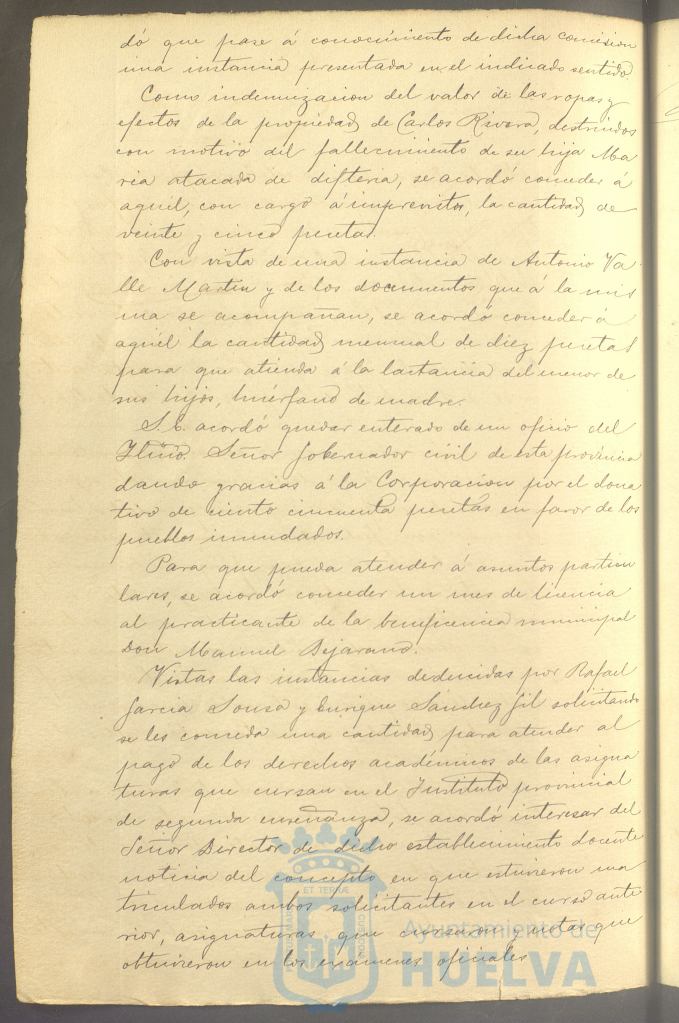 dó que pase á conocimiento de dicha comision
una instancia presentada en el indicado sentido.
Como indemnizacion del valor de las ropas y
efectos de la propiedad de Carlos Rivera, destruidos
con motivo del fallecimiento de su hija Ma
ria atacada de difteria, se acordó conceder á
aquel, con cargo á imprevistos, la cantidad de
veinte y cinco pesetas.
Con vista de una instancia de Antonio Va-
lle Martin y de los documentos que á la mis
ma se acompañan, se acordó conceder á
aquél la cantidad mensual de diez pesetas
para que atienda á la lactancia del menor de
sus hijos, huérfano de madre.
S. E. acordó quedar enterado de un oficio del
Iltmo. Señor Gobernador civil de esta provincia
dando gracias á la Corporacion por el dona
tivo de ciento cincuenta pesetas en favor de los
pueblos inundados.
Para que pueda atender á asuntos particu
lares, se acordó conceder un mes de licencia
al practicante de la beneficencia municipal
Don Manuel Bejarano.
Vistas las instancias deducidas por Rafael
Garcia Sousa y Enrique Sánchez Gil solicitando
se les conceda una cantidad para atender al
pago de los derechos académicos de las asigna
turas que cursan en el Instituto provincial
de segunda enseñanza, se acordó interesar del
Señor Director de dicho establecimiento docente
noticia del concepto en que estuvieron ma
triculados ambos solicitantes en el curso ante
rior, asignaturas que cursaron y notas que
obtuvieron en los exámenes oficiales
ET TERRÆ
Ayuntamiento de
HUELVA